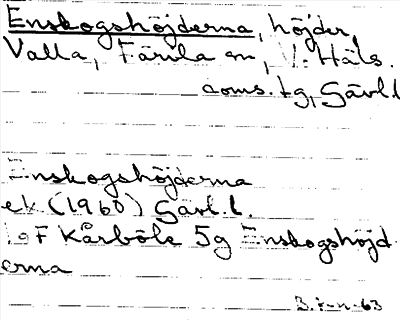 Enskogshöjderna, höjder,
Valla, Färila sn, V. Häls.
doms. tg, Gävl.l
Enskogshöjderna
ek (1960) Gävl. l.
Kårböle 5g Enskogshöjd
erna